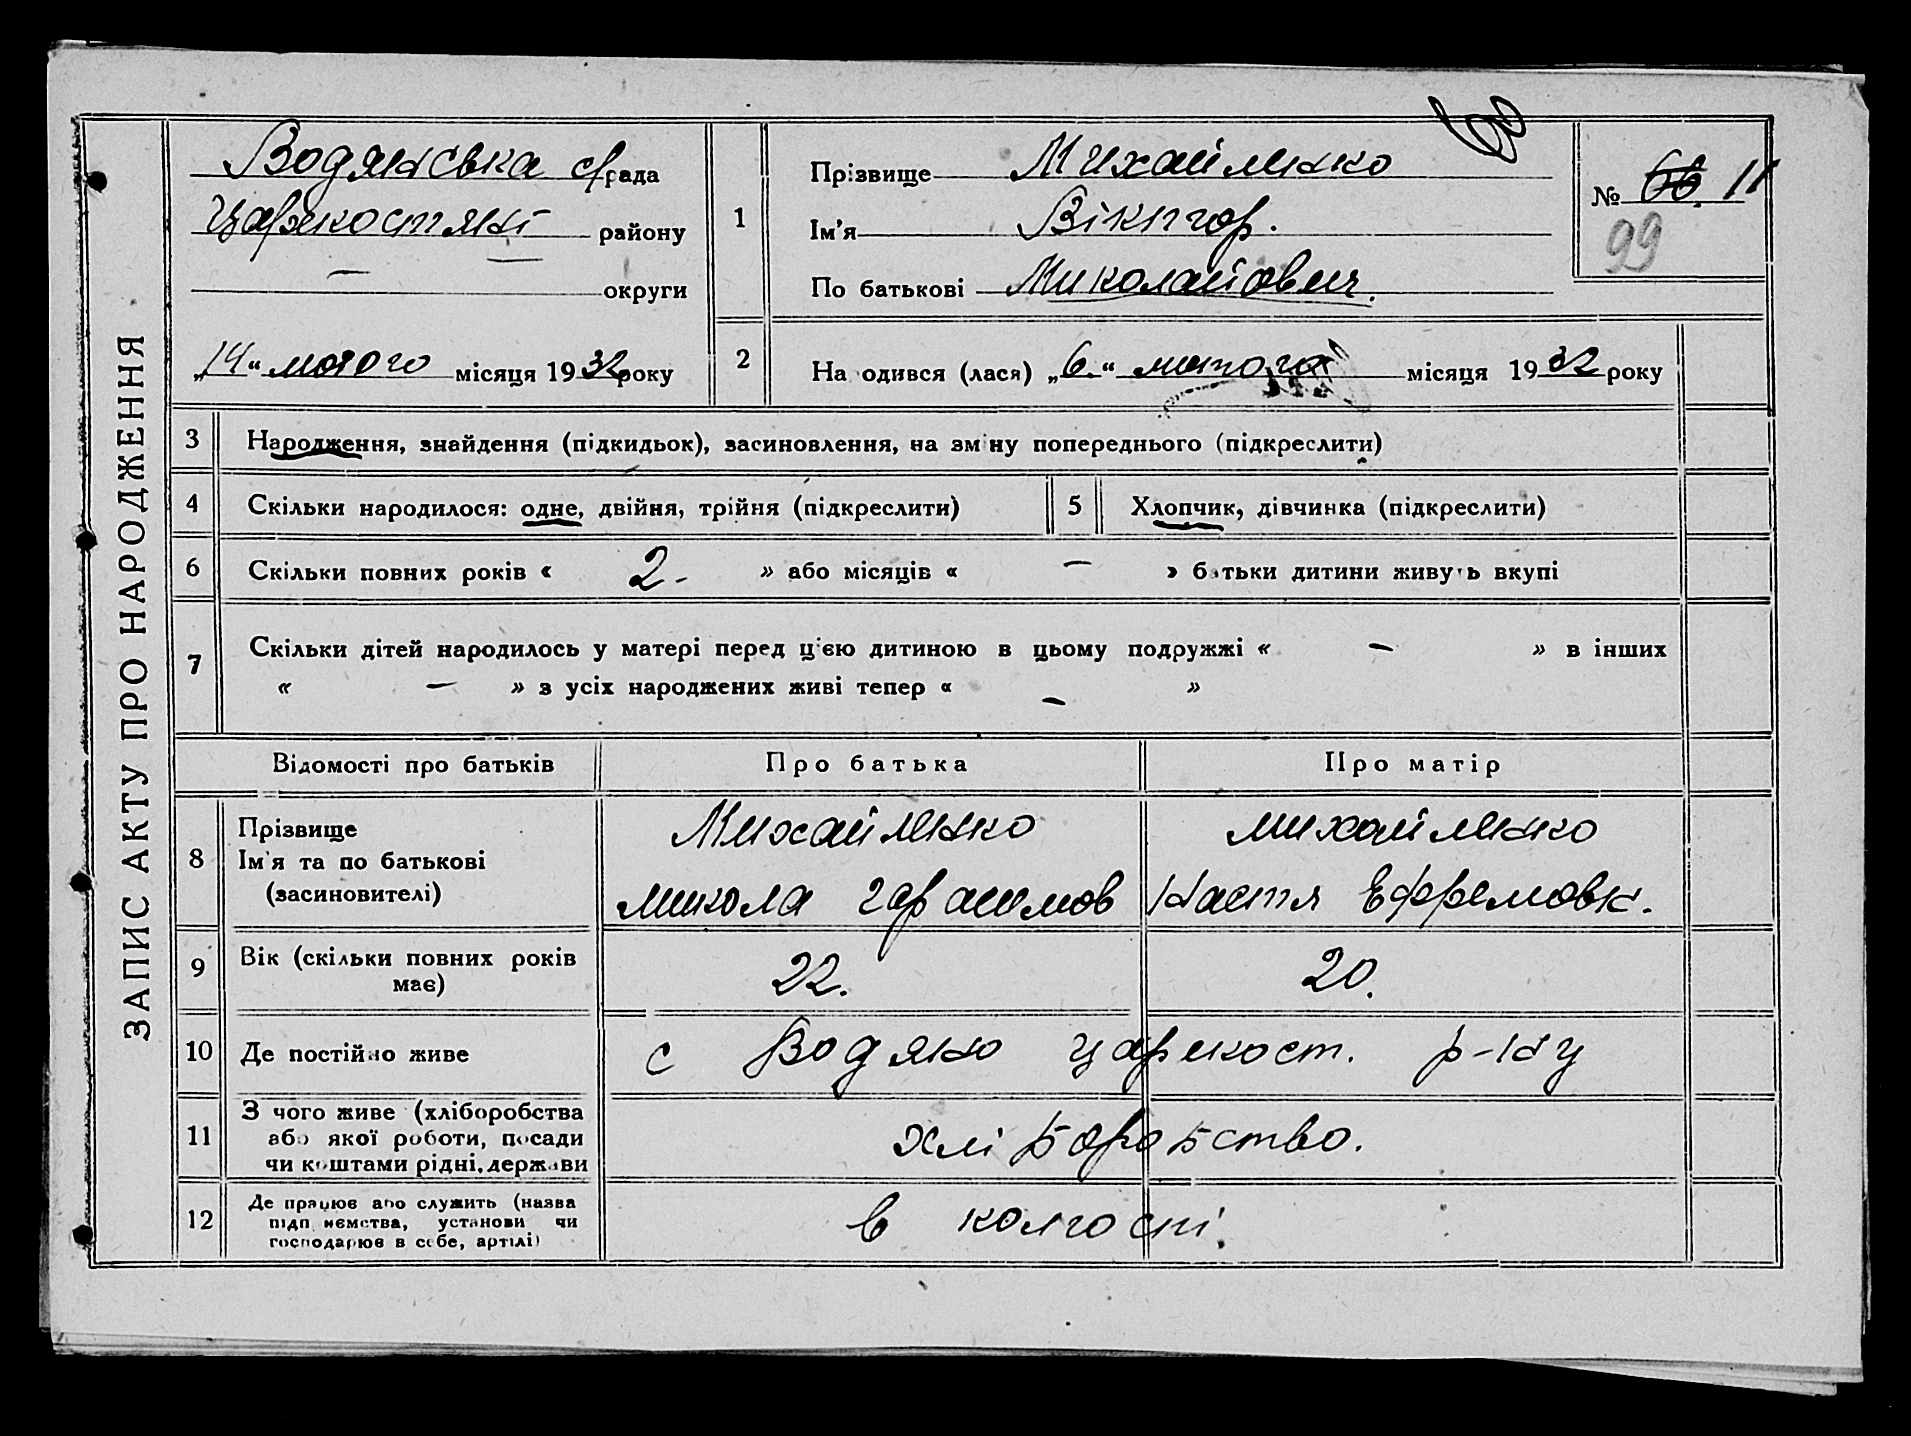 ЗАПИС АКТУ ПРО НАРОДЖЕННЯ
Водянська с/рада
району
— —
округи
„14“ лютого місяця 1932 року
1
Прізвище Михайленко
Ім'я Віктор.
По батькові Миколайович.
60
№ 66. 11
99
2
На одився (лася) „6.“ лютого місяця 1932 року
3 Народження, знайдення (підкидьок), засиновлення, на зміну попереднього (підкреслити)
4 Скільки народилося: одне, двійня, трійня (підкреслити) 5 Хлопчик, дівчинка (підкреслити)
6 Скільки повних років « 2. » або місяців « — » батьки дитини живуть вкупі
7 Скільки дітей народилось у матері перед цією дитиною в цьому подружжі « — » в інших
« — » з усіх народжених живі тепер « — »
Відомості про батьків Про батька Про матір
8 Прізвище
Ім'я та по батькові
(засиновителі)
Михайленко Михайленко
Микола Гарасимов Настя Ефремовн.
9 Вік (скільки повних років має) 22. 20.
10 Де постійно живе с Водяно Царекост. р-ну
11 З чого живе (хліборобства
або якої роботи, посади
чи коштами рідні, держави
хліборобство.
12 Де працює або служить (назва
підприємства, установи чи
господарює в себе, артілі)
в колгоспі.